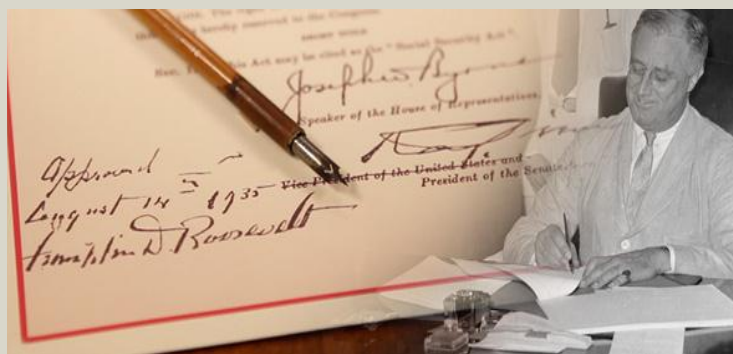 hereby reserved to the Congress.
SHORT TITLE
Sec. this Act may be cited as the "Social Security Act".
Joseph W. Byrns
Speaker of the House of Representatives.
Vice President of the United States and
President of the Senate
Approved
August 14th 1935
Franklin D. Roosevelt